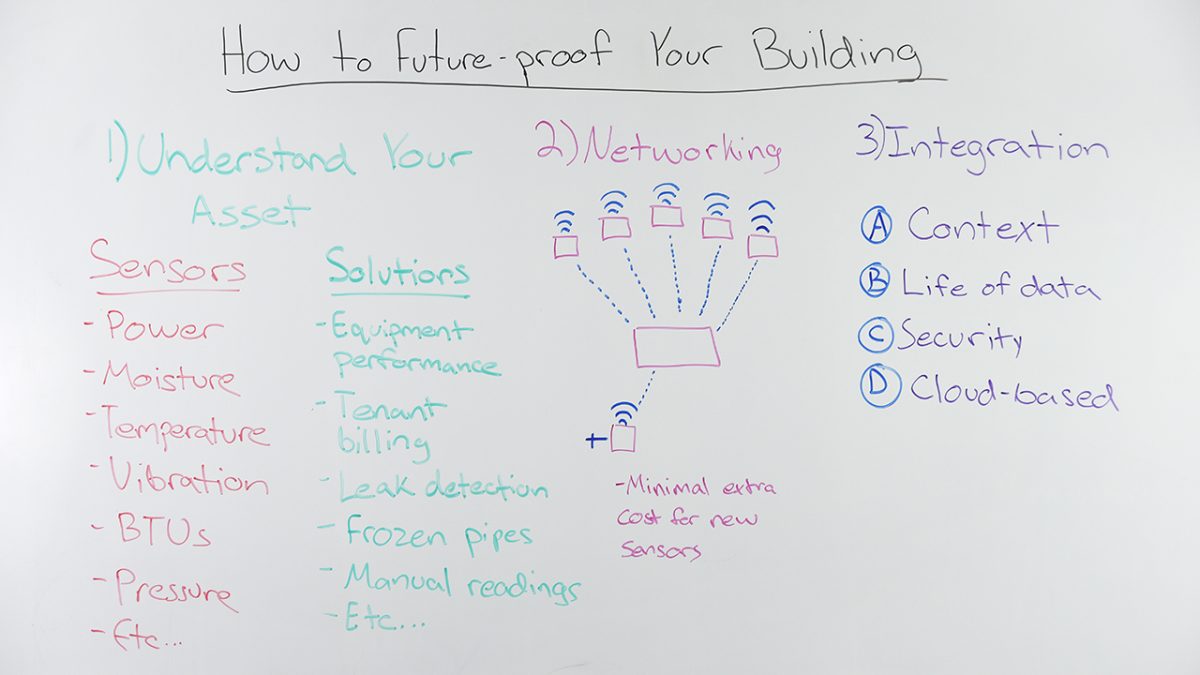 How to Future-proof Your Building
1) Understand Your
Asset
Sensors
- Power
- Moisture
- Temperature
- Vibration
- BTUs
- Pressure
- Etc...
Solutions
- Equipment
performance
- Tenant
billing
- Leak detection
- Frozen pipes
- Manual readings
- Etc...
2) Networking
+
- Minimal extra
cost for new
sensors
3) Integration
A Context
B Life of data
C Security
D Cloud-based